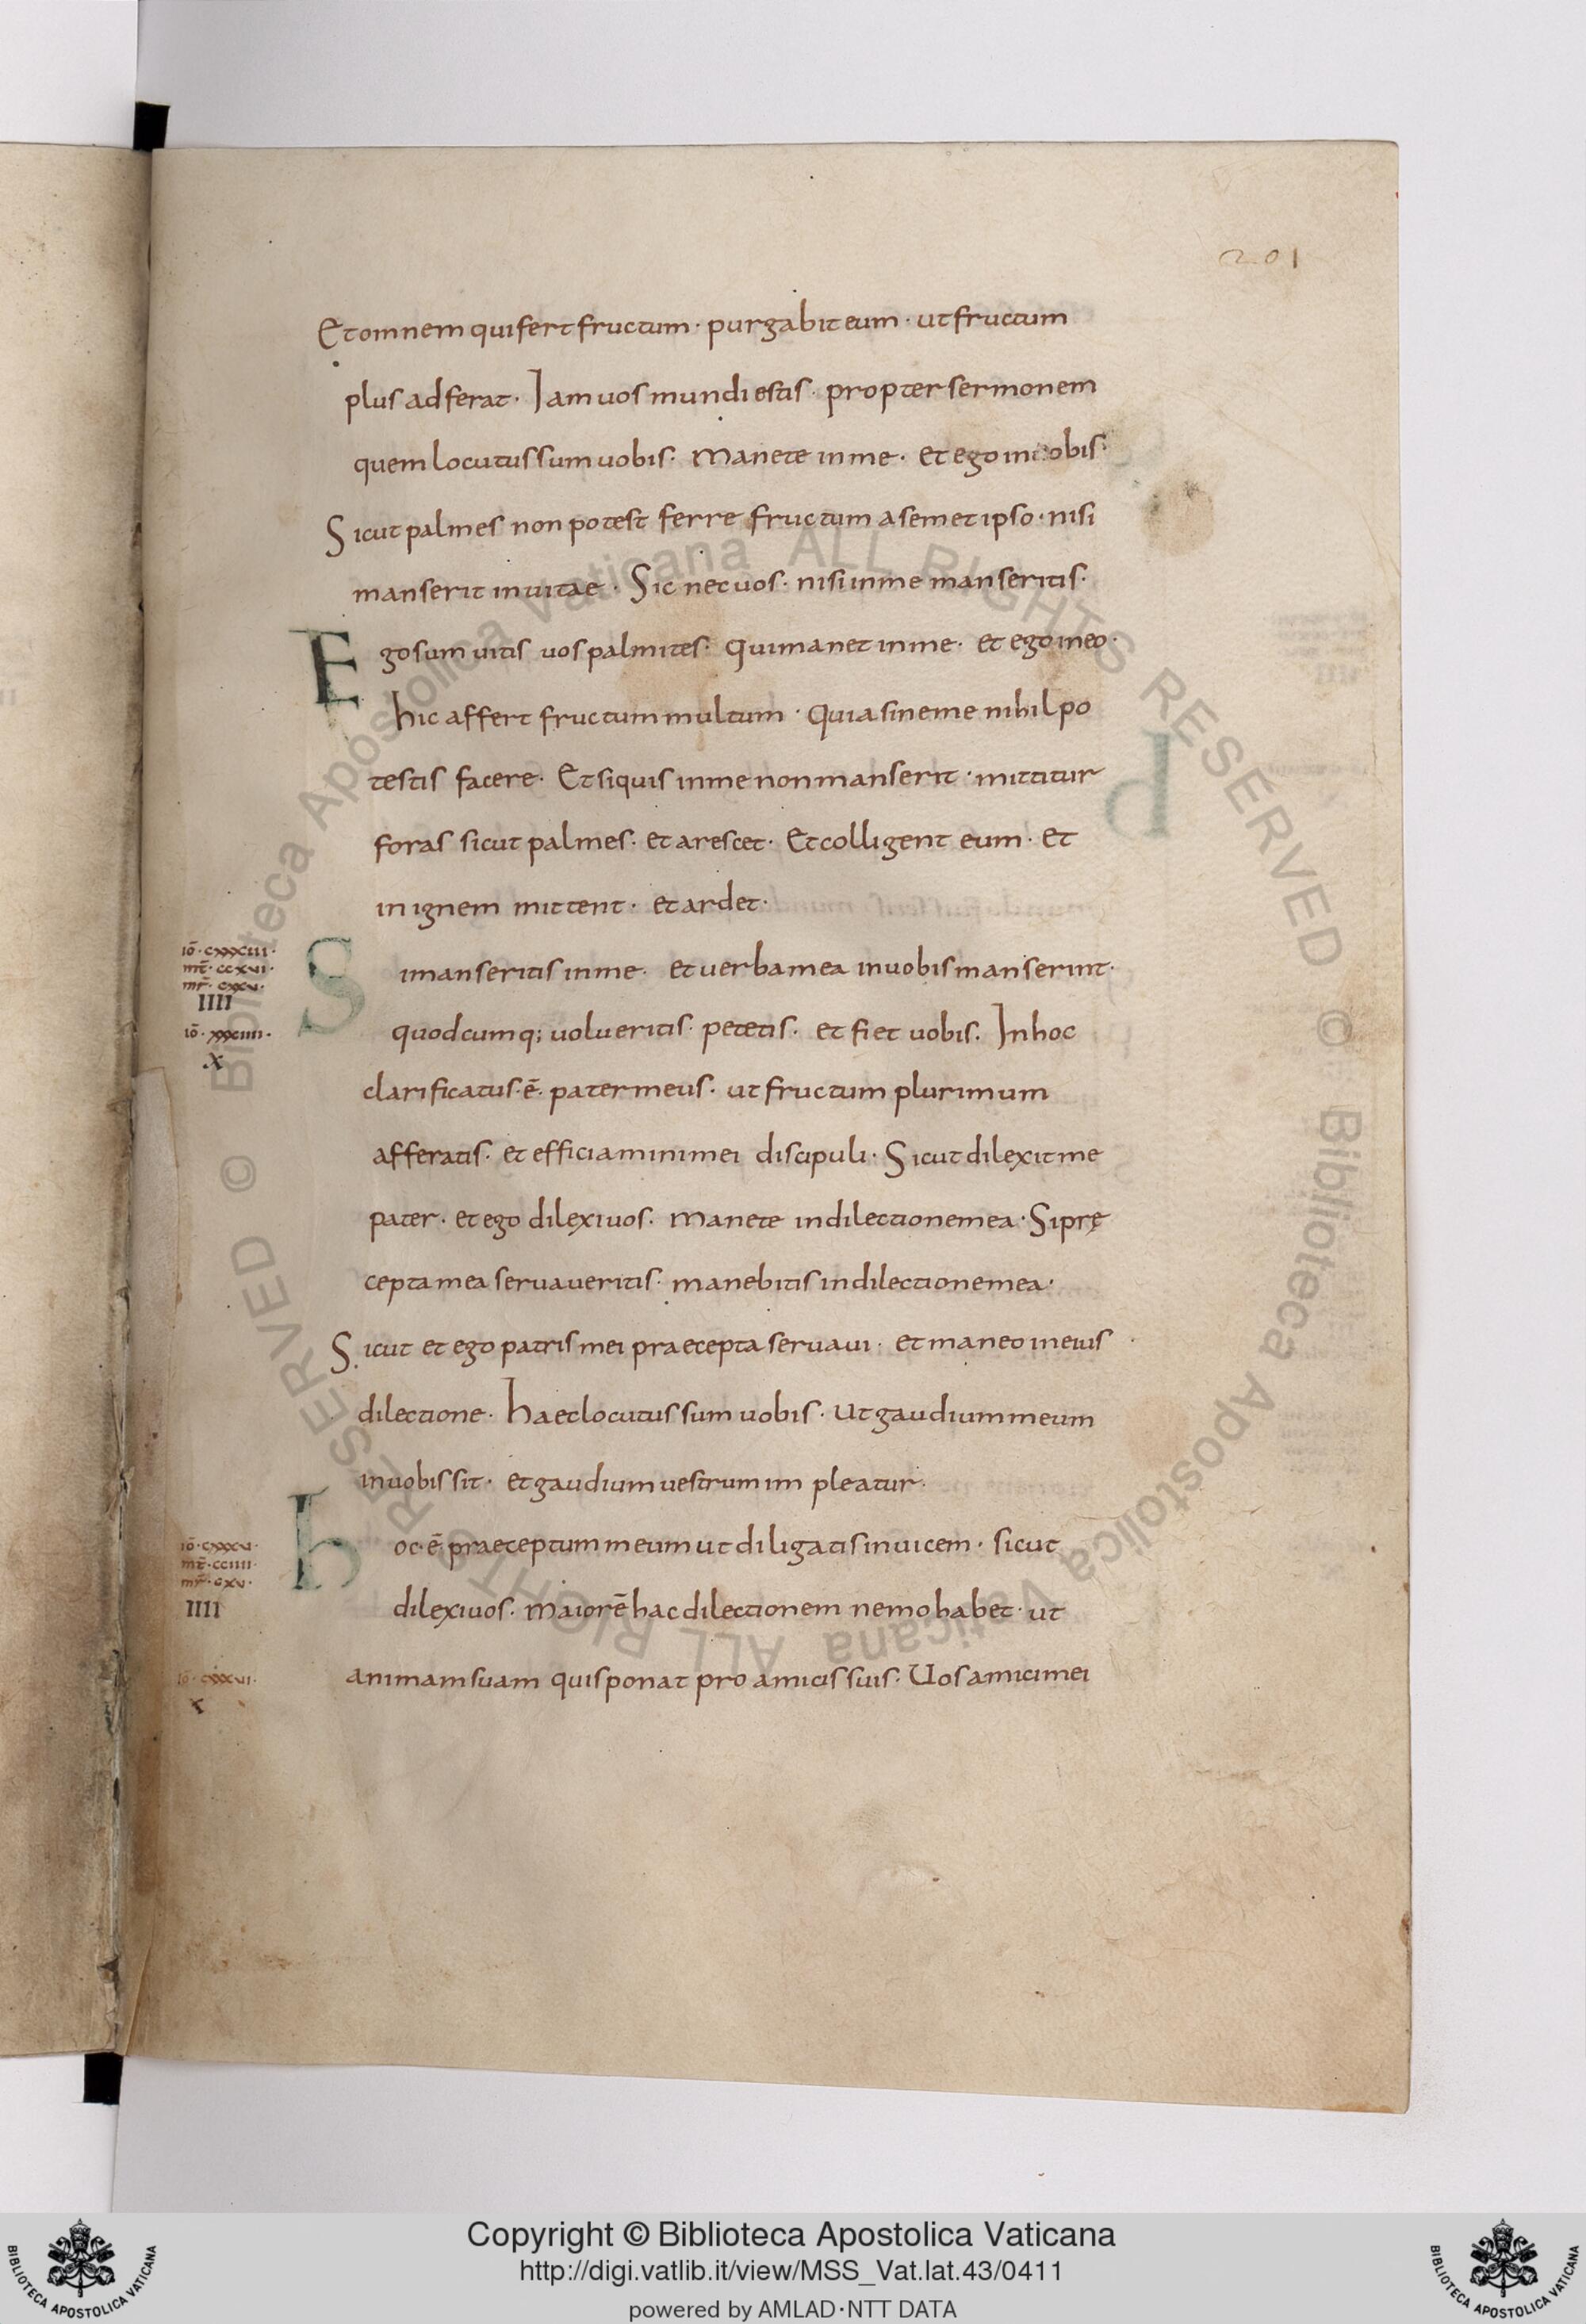 201
Et omnem qui fert fructum · purgabit eum · ut fructum
plus adferat · Iam uos mundi estis · propter sermonem
quem locutus sum uobis · Manete in me · et ego in uobis ·
Sicut palmes non potest ferre fructum a semet ipso · nisi
manserit in uitae · Sic nec uos · nisi in me manseritis ·
Ego sum uitis uos palmites · Qui manet in me · et ego in eo ·
hic affert fructum multum · Quia sine me nihil po
testis facere · Et si quis in me non manserit · mittitur
foras sicut palmes · et arescet · Et colligent eum · et
in ignem mittent · et ardet ·
iō · cxxxiii ·
mt̄ · ccxvi ·
mr̄ · cxxv ·
IIII
Si manseritis in me · et uerba mea in uobis manserint ·
iō · xxxiiii ·
X
quodcumq; uolueritis · petetis · et fiet uobis · In hoc
clarificatus · ē · pater meus · ut fructum plurimum
afferatis · et efficiamini mei discipuli · Sicut dilexit me
pater · et ego dilexi uos · Manete in dilectione mea · Si prę
cepta mea seruaueritis · manebitis in dilectione mea ·
Sicut et ego patris mei praecepta seruaui · et maneo in eius
dilectione · haec locutus sum uobis · Ut gaudium meum
in uobis sit · et gaudium uestrum impleatur ·
iō · cxxxv ·
mt̄ · cciiii ·
mr̄ · cxv ·
IIII
hoc · ē · praeceptum meum ut diligatis inuicem · sicut
dilexi uos · Maiorē hac dilectionem nemo habet · ut
iō · cxxxvi ·
X
animam suam quis ponat pro amicis suis · Uos amici mei
© Biblioteca Apostolica Vaticana ALL RIGHTS RESERVED © Biblioteca Apostolica Vaticana ALL RIGHTS RESERVED
Copyright © Biblioteca Apostolica Vaticana
http://digi.vatlib.it/view/MSS_Vat.lat.43/0411
powered by AMLAD·NTT DATA
BIBLIOTECA APOSTOLICA VATICANA
BIBLIOTECA APOSTOLICA VATICANA